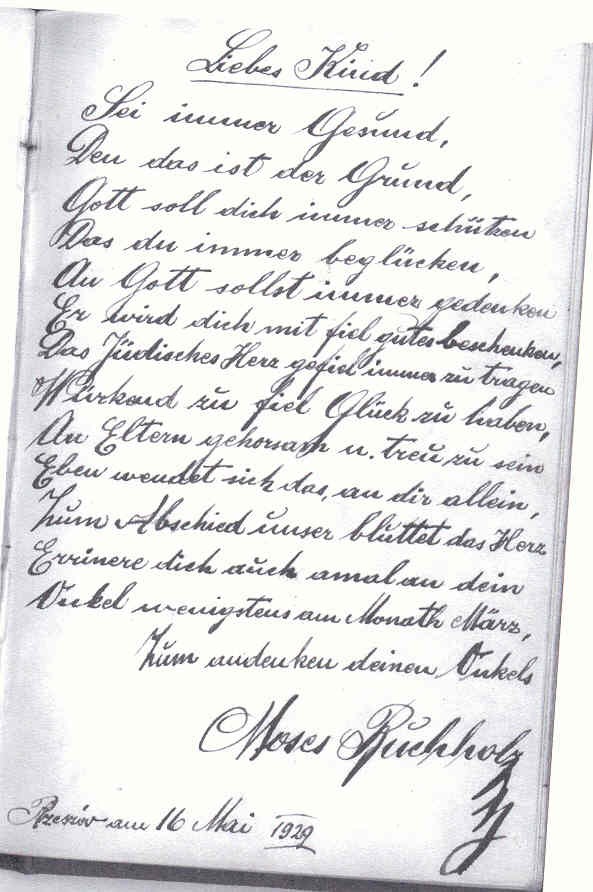 Liebes Kind!
Sei immer Gesund,
Den das ist der Grund,
Gott soll dich immer schützen
Das du immer beglücken,
An Gott sollst immer gedenken
Er wird dich mit fiel gutes beschenken,
Das Jüdisches Herz gefiel immer zu tragen
Würkend zu fiel Glück zu haben,
An Eltern gehorsam u. treu zu sein
Eben wendet sich das, an dir allein,
Zum Abschied unser bluttet das Herz
Errinere dich auch amal an dein
Onkel wenigstens am Monath März,
Zum andenken deinen Onkels
Moses Buchholz
Rzeszów am 16 Mai 1929